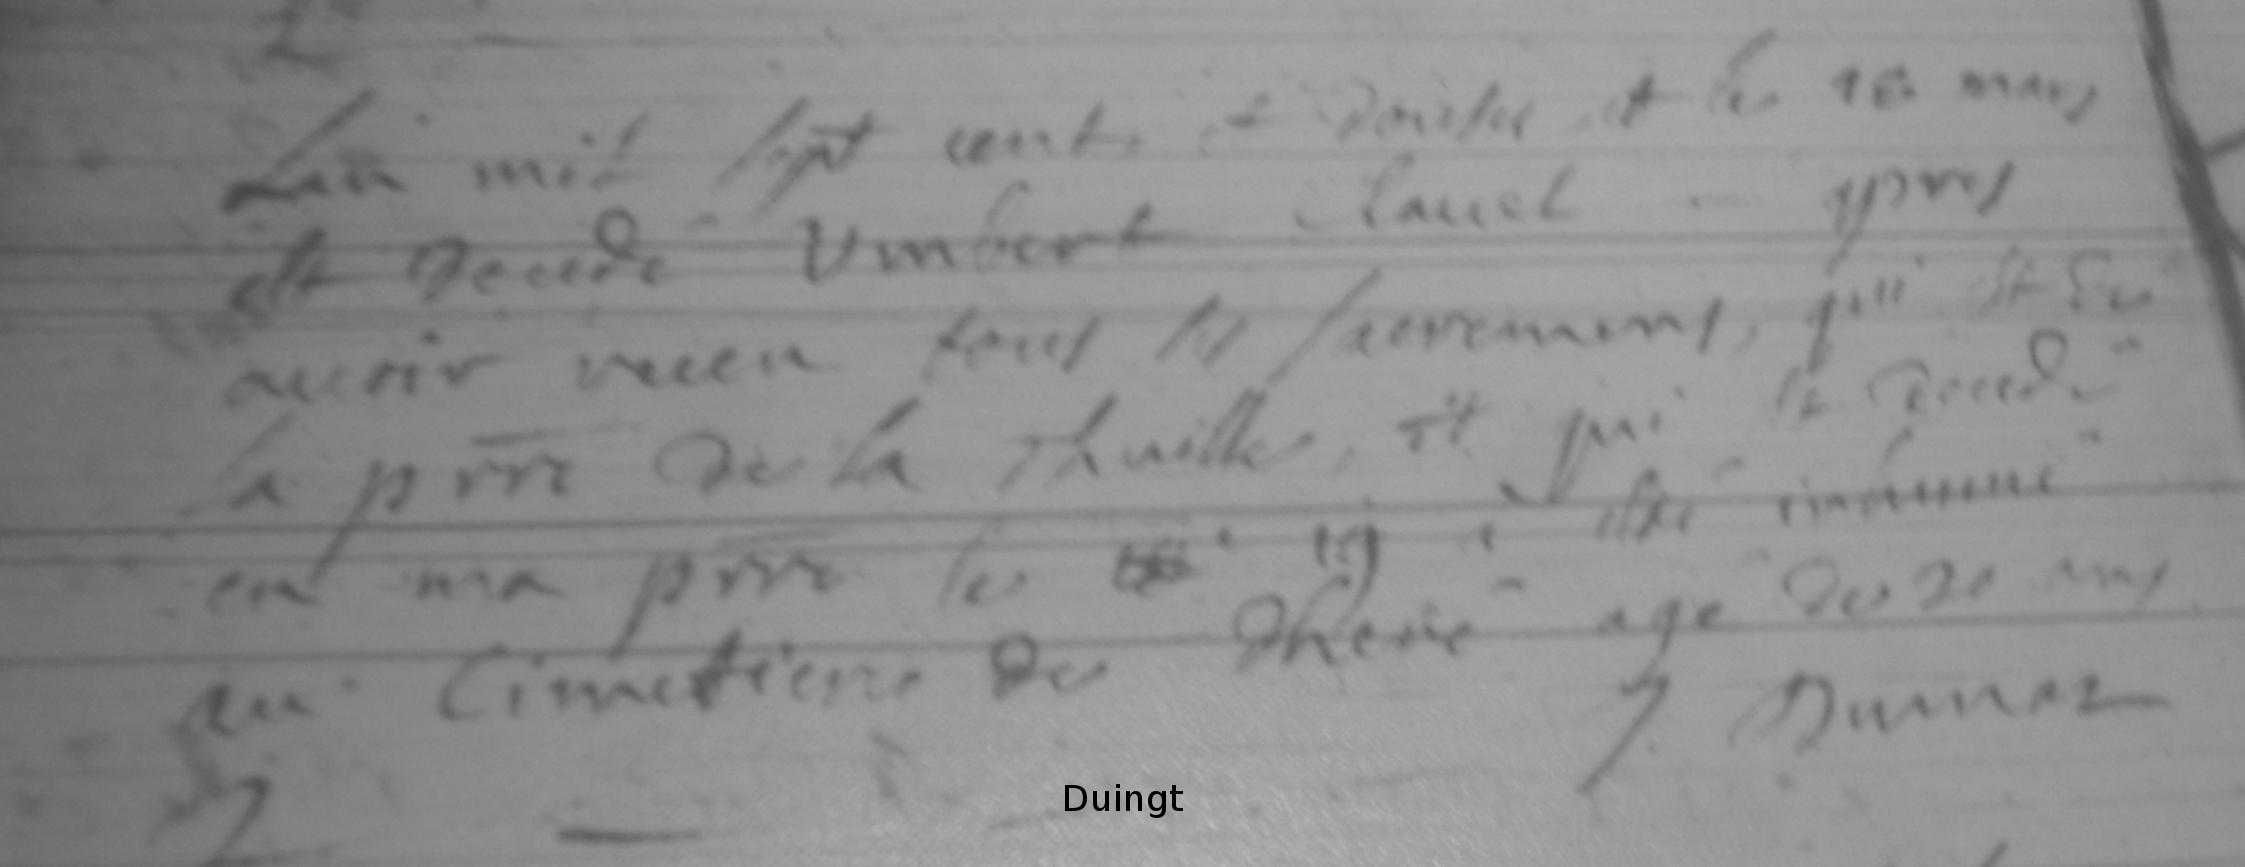 Lan mil sept cent et douze et le 18 mars
est decede Umbert Claude apres
avoir receu tous les sacrements, qui est
la prre de la Thuille, et qui est decede
en ma prre le 19 a esté inhumé
au Cimetiere de age de 20 ans
J Dumaz
Duingt